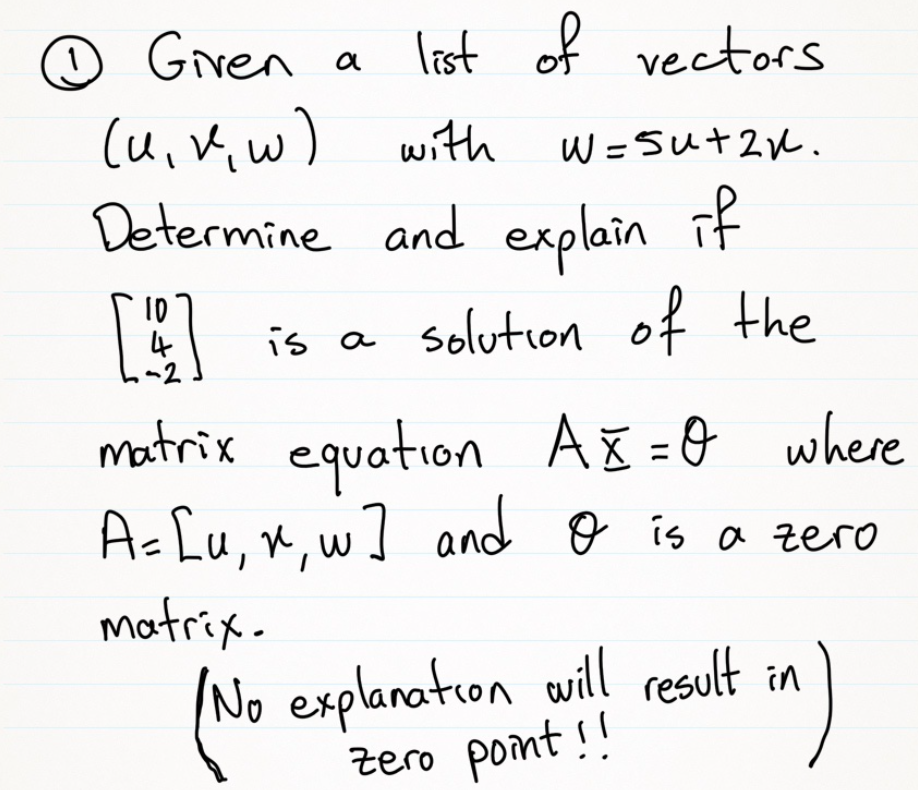 ① Given a list of vectors
(u, v, w) with w = 5u + 2v.
Determine and explain if
[10 4 -2] is a solution of the
matrix equation A X = θ where
A = [u, v, w] and θ is a zero
matrix.
(No explanation will result in
zero point!!)